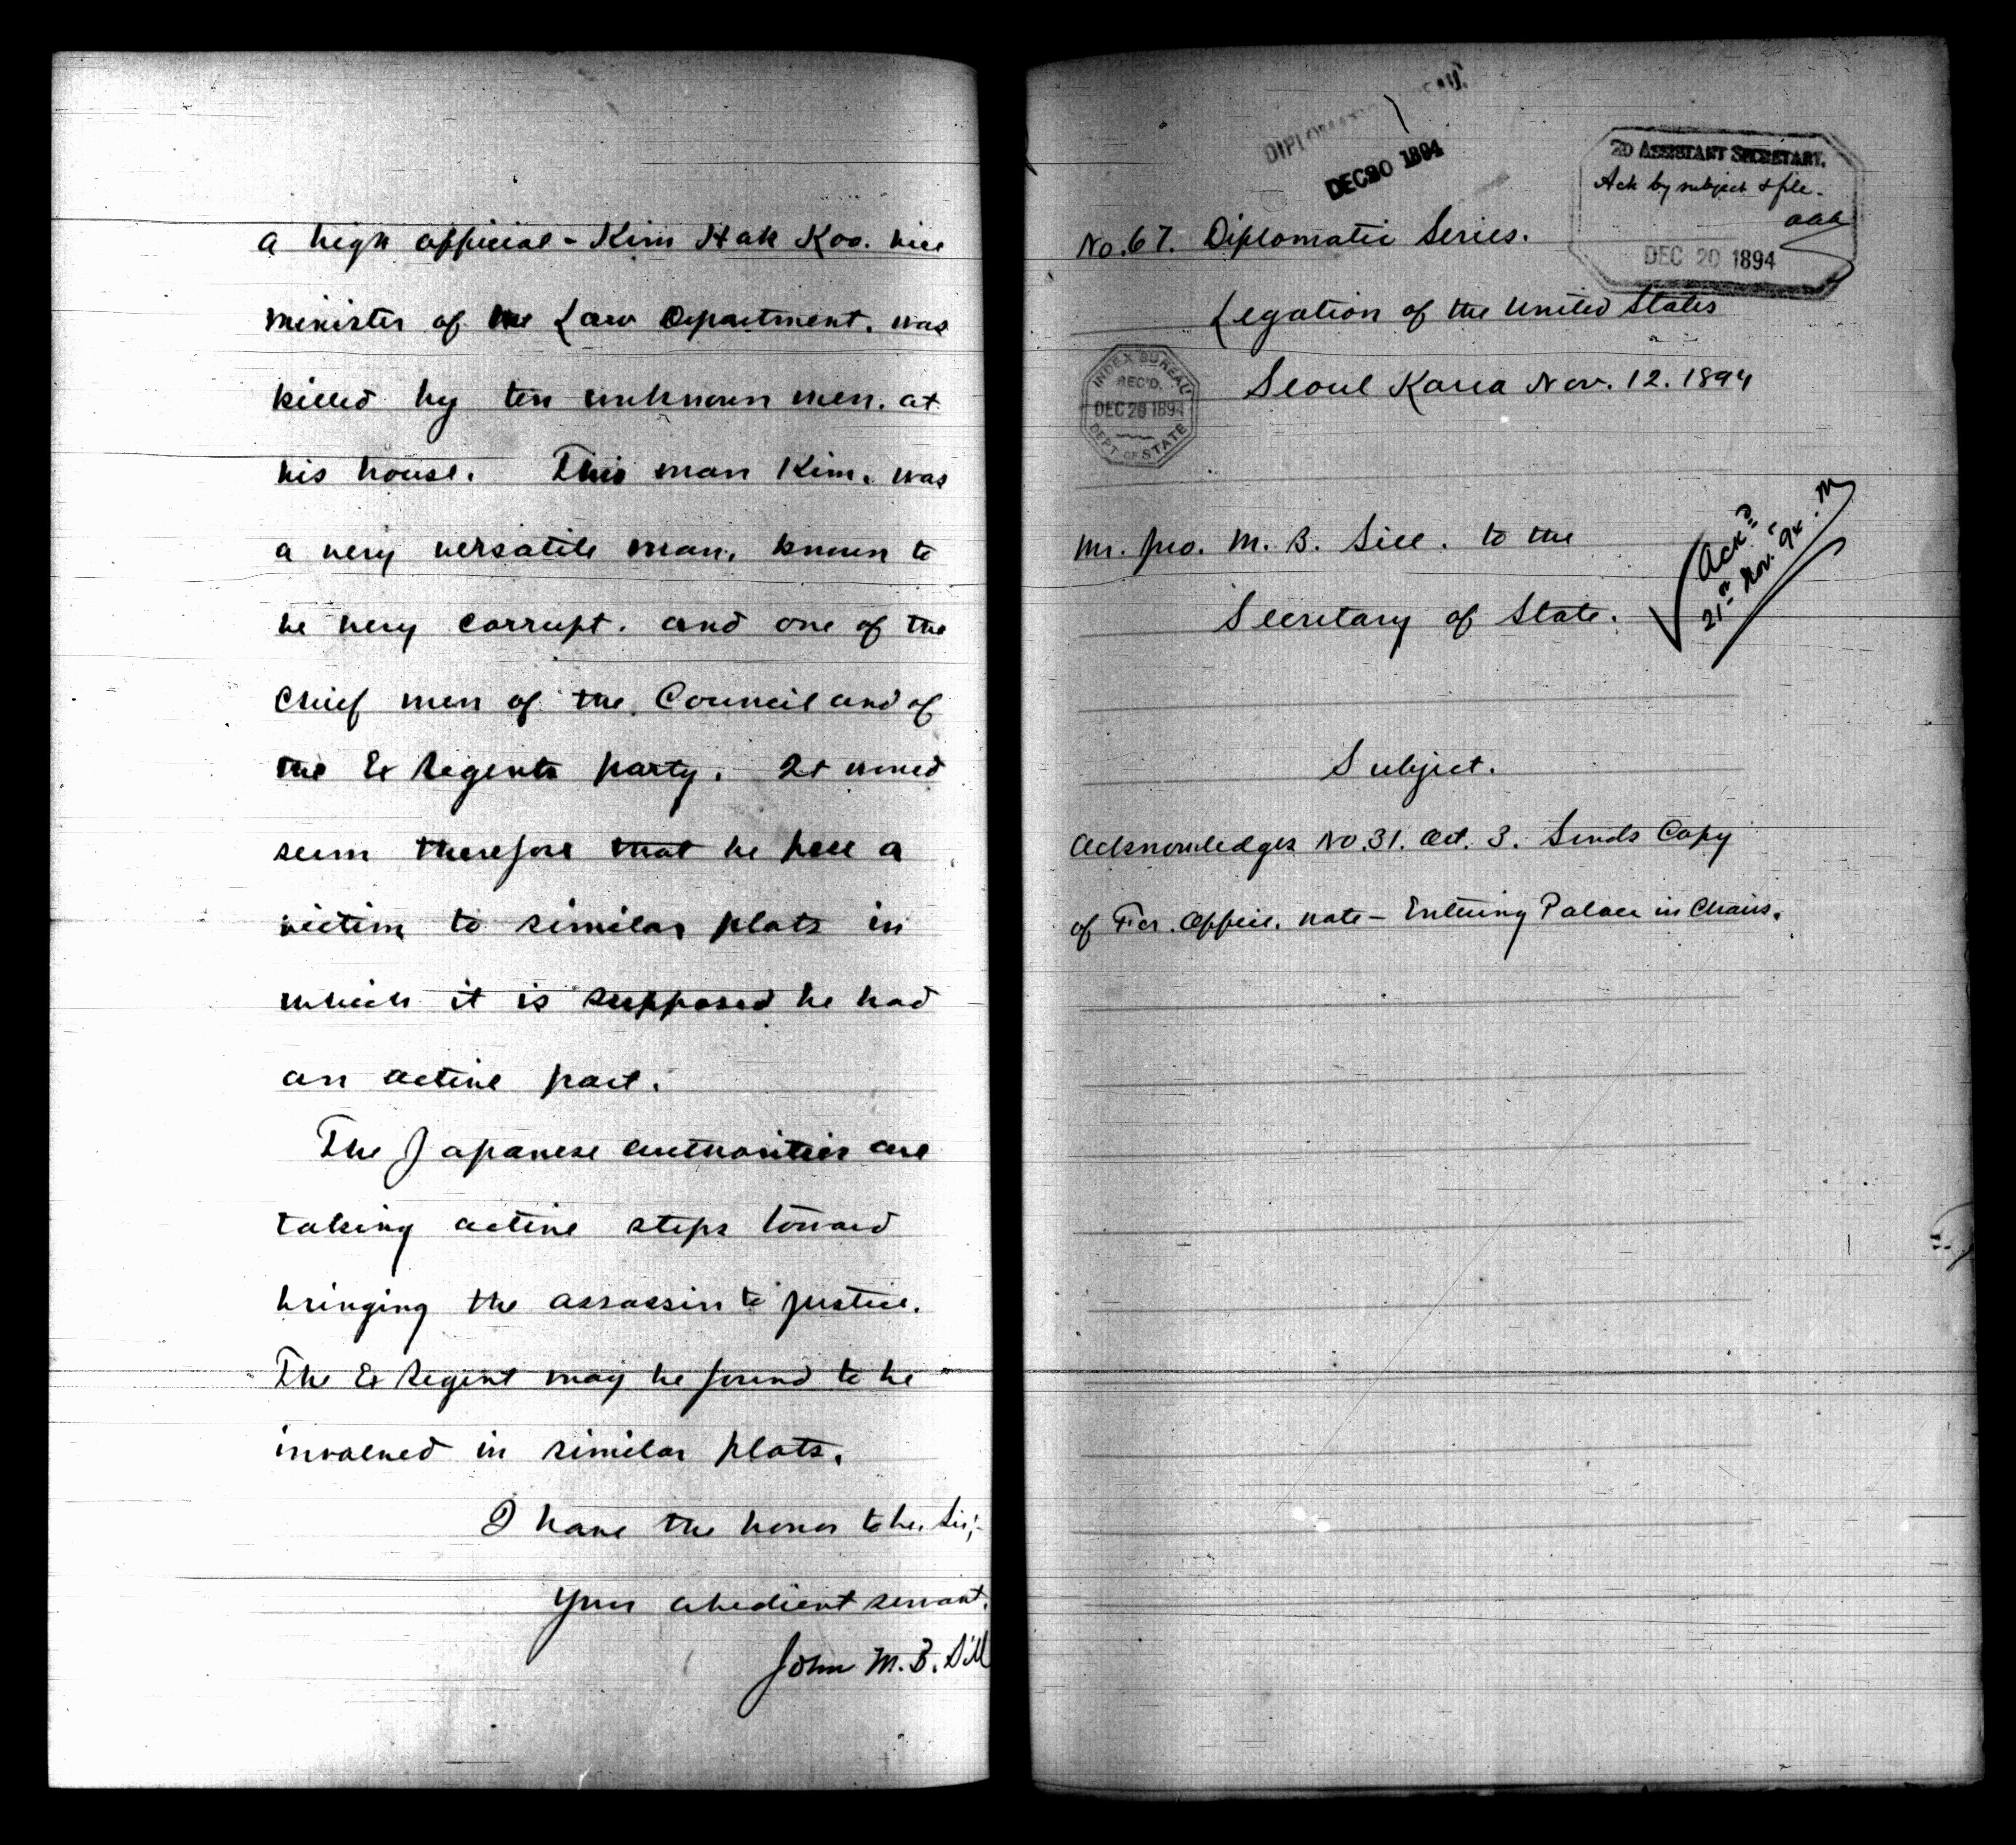 a high official - Kim Hak Koo. vice
minister of the Law Department. was
killed by ten unknown men. at
his house. This man Kim. was
a very versatile man, known to
be very corrupt. and one of the
chief men of the Council and of
the Ex Regents party. It would
seem therefore that he fell a
victim to similar plots in
which it is supposed he had
an active part.
The Japanese authorities are
taking active steps toward
bringing the assassin to justice.
The Ex Regent may be found to be
involved in similar plots.
I have the honor to be, Sir;-
Your obedient servant.
John M. B. Sill
DIPLOMATIC
DEC 20 1894
2D ASSISTANT SECRETARY.
Ack by subject & file.
aaa
DEC 20 1894
No. 67. Diplomatic Series.
Legation of the United States
Seoul Korea Nov. 12. 1894
INDEX BUREAU
REC'D.
DEC 20 1894
DEPT OF STATE
Mr. Jno. M. B. Sill. to the
Secretary of State.
Ack'd
21st Nov. '94. M
Subject.
Acknowledges No. 31. Oct. 3. Sends Copy
of For. Office. note - Entering Palace in Chairs.